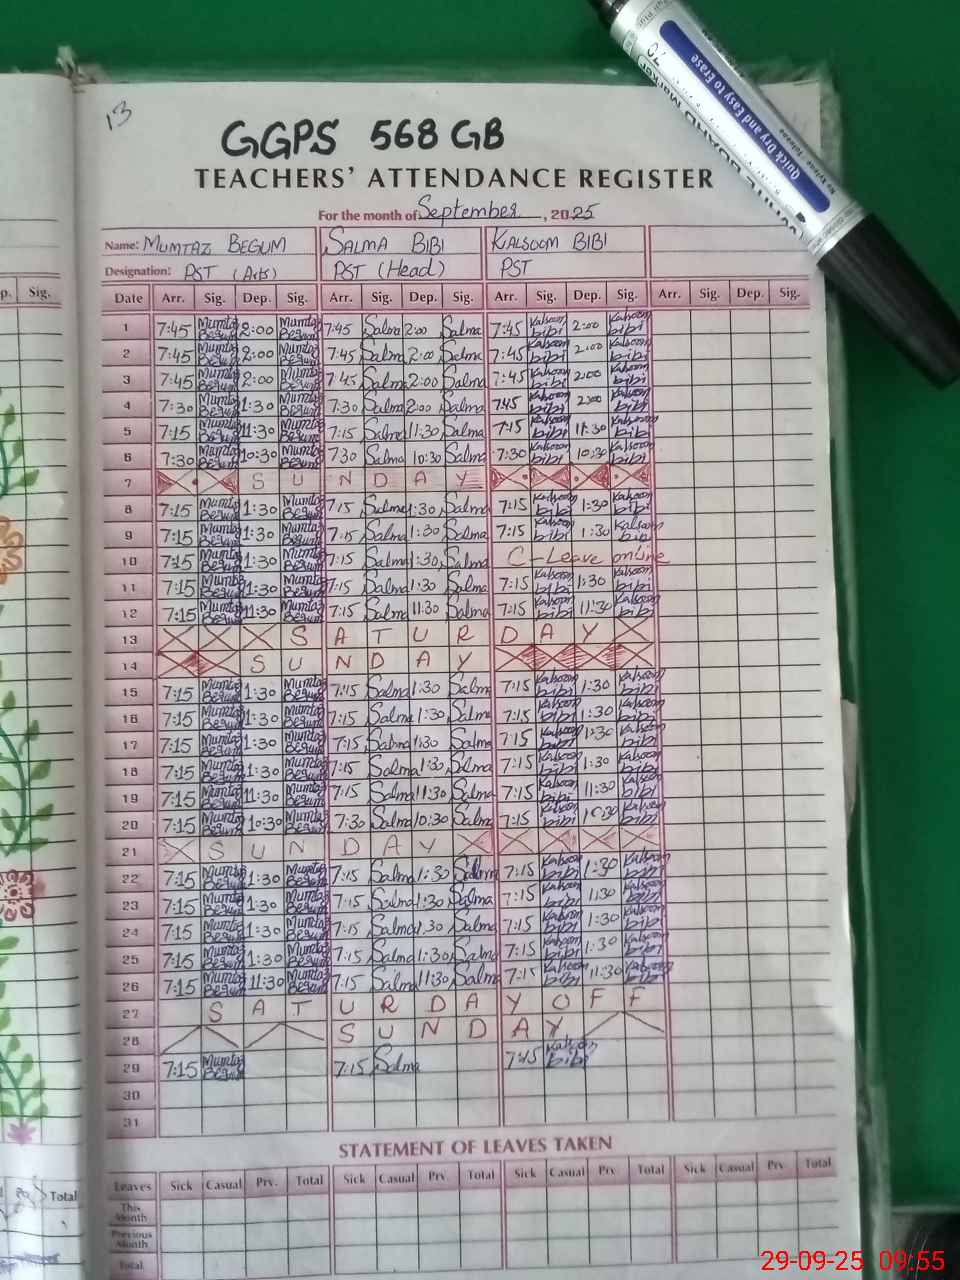 13
GGPS 568 GB
TEACHERS' ATTENDANCE REGISTER
For the month of September, 2025
Name: MUMTAZ BEGUM SALMA BIBI KALSOOM BIBI
Designation: PST (Arts) PST (Head) PST
p. Sig. Date Arr. Sig. Dep. Sig. Arr. Sig. Dep. Sig. Arr. Sig. Dep. Sig. Arr. Sig. Dep. Sig.
1 7:45 Mumtaz Begum 2:00 Mumtaz Begum 7:45 Salma 2:00 Salma 7:45 Kalsoom bibi 2:00 Kalsoom bibi
2 7:45 Mumtaz Begum 2:00 Mumtaz Begum 7:45 Salma 2:00 Salma 7:45 Kalsoom bibi 2:00 Kalsoom bibi
3 7:45 Mumtaz Begum 2:00 Mumtaz Begum 7:45 Salma 2:00 Salma 7:45 Kalsoom bibi 2:00 Kalsoom bibi
4 7:30 Mumtaz Begum 1:30 Mumtaz Begum 7:30 Salma 2:00 Salma 7:45 Kalsoom bibi 2:00 Kalsoom bibi
5 7:15 Mumtaz Begum 11:30 Mumtaz Begum 7:15 Salma 11:30 Salma 7:15 Kalsoom bibi 11:30 Kalsoom bibi
6 7:30 Mumtaz Begum 10:30 Mumtaz Begum 7:30 Salma 10:30 Salma 7:30 Kalsoom bibi 10:30 Kalsoom bibi
7 SUNDAY
8 7:15 Mumtaz Begum 1:30 Mumtaz Begum 7:15 Salma 1:30 Salma 7:15 Kalsoom bibi 1:30 Kalsoom bibi
9 7:15 Mumtaz Begum 1:30 Mumtaz Begum 7:15 Salma 1:30 Salma 7:15 Kalsoom bibi 1:30 Kalsoom bibi
10 7:15 Mumtaz Begum 1:30 Mumtaz Begum 7:15 Salma 1:30 Salma C-Leave online
11 7:15 Mumtaz Begum 1:30 Mumtaz Begum 7:15 Salma 1:30 Salma 7:15 Kalsoom bibi 1:30 Kalsoom bibi
12 7:15 Mumtaz Begum 11:30 Mumtaz Begum 7:15 Salma 11:30 Salma 7:15 Kalsoom bibi 11:30 Kalsoom bibi
13 SATURDAY
14 SUNDAY
15 7:15 Mumtaz Begum 1:30 Mumtaz Begum 7:15 Salma 1:30 Salma 7:15 Kalsoom bibi 1:30 Kalsoom bibi
16 7:15 Mumtaz Begum 1:30 Mumtaz Begum 7:15 Salma 1:30 Salma 7:15 Kalsoom bibi 1:30 Kalsoom bibi
17 7:15 Mumtaz Begum 1:30 Mumtaz Begum 7:15 Salma 1:30 Salma 7:15 Kalsoom bibi 1:30 Kalsoom bibi
18 7:15 Mumtaz Begum 1:30 Mumtaz Begum 7:15 Salma 1:30 Salma 7:15 Kalsoom bibi 1:30 Kalsoom bibi
19 7:15 Mumtaz Begum 11:30 Mumtaz Begum 7:15 Salma 11:30 Salma 7:15 Kalsoom bibi 11:30 Kalsoom bibi
20 7:15 Mumtaz Begum 10:30 Mumtaz Begum 7:30 Salma 10:30 Salma 7:15 Kalsoom bibi 10:30 Kalsoom bibi
21 SUNDAY
22 7:15 Mumtaz Begum 1:30 Mumtaz Begum 7:15 Salma 1:30 Salma 7:15 Kalsoom bibi 1:30 Kalsoom bibi
23 7:15 Mumtaz Begum 1:30 Mumtaz Begum 7:15 Salma 1:30 Salma 7:15 Kalsoom bibi 1:30 Kalsoom bibi
24 7:15 Mumtaz Begum 1:30 Mumtaz Begum 7:15 Salma 1:30 Salma 7:15 Kalsoom bibi 1:30 Kalsoom bibi
25 7:15 Mumtaz Begum 1:30 Mumtaz Begum 7:15 Salma 1:30 Salma 7:15 Kalsoom bibi 1:30 Kalsoom bibi
26 7:15 Mumtaz Begum 11:30 Mumtaz Begum 7:15 Salma 11:30 Salma 7:15 Kalsoom bibi 11:30 Kalsoom bibi
27 SATURDAY OFF
28 SUNDAY
29 7:15 Mumtaz Begum 7:15 Salma 7:45 Kalsoom bibi
30
31
STATEMENT OF LEAVES TAKEN
Leaves Sick Casual Prv. Total Sick Casual Prv. Total Sick Casual Prv. Total Sick Casual Prv. Total
This Month
Previous Month
Total
Total
Quick Dry and Easy to Erase
70
Marker
29-09-25 09:55